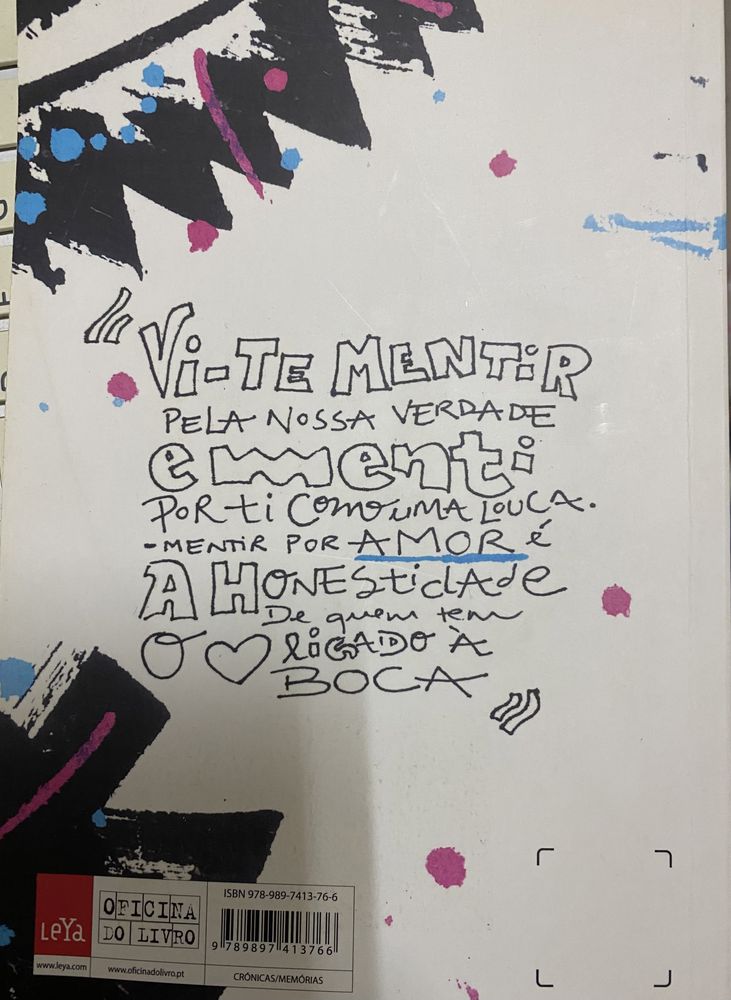 "Vi-TE MENTiR
PELA NOSSA VERDADE
e menti
PoR ti ComouMA LOUCA.
-MENTIR POR AMOR é
A HONEStidAde
De quem tem
O ♡ liGADO À
BOCA"
ISBN 978-989-7413-76-6
LeYa
OFICINA
DO LIVRO
9 789897 413766
www.leya.com
www.oficinadolivro.pt
CRÓNICAS/MEMÓRIAS